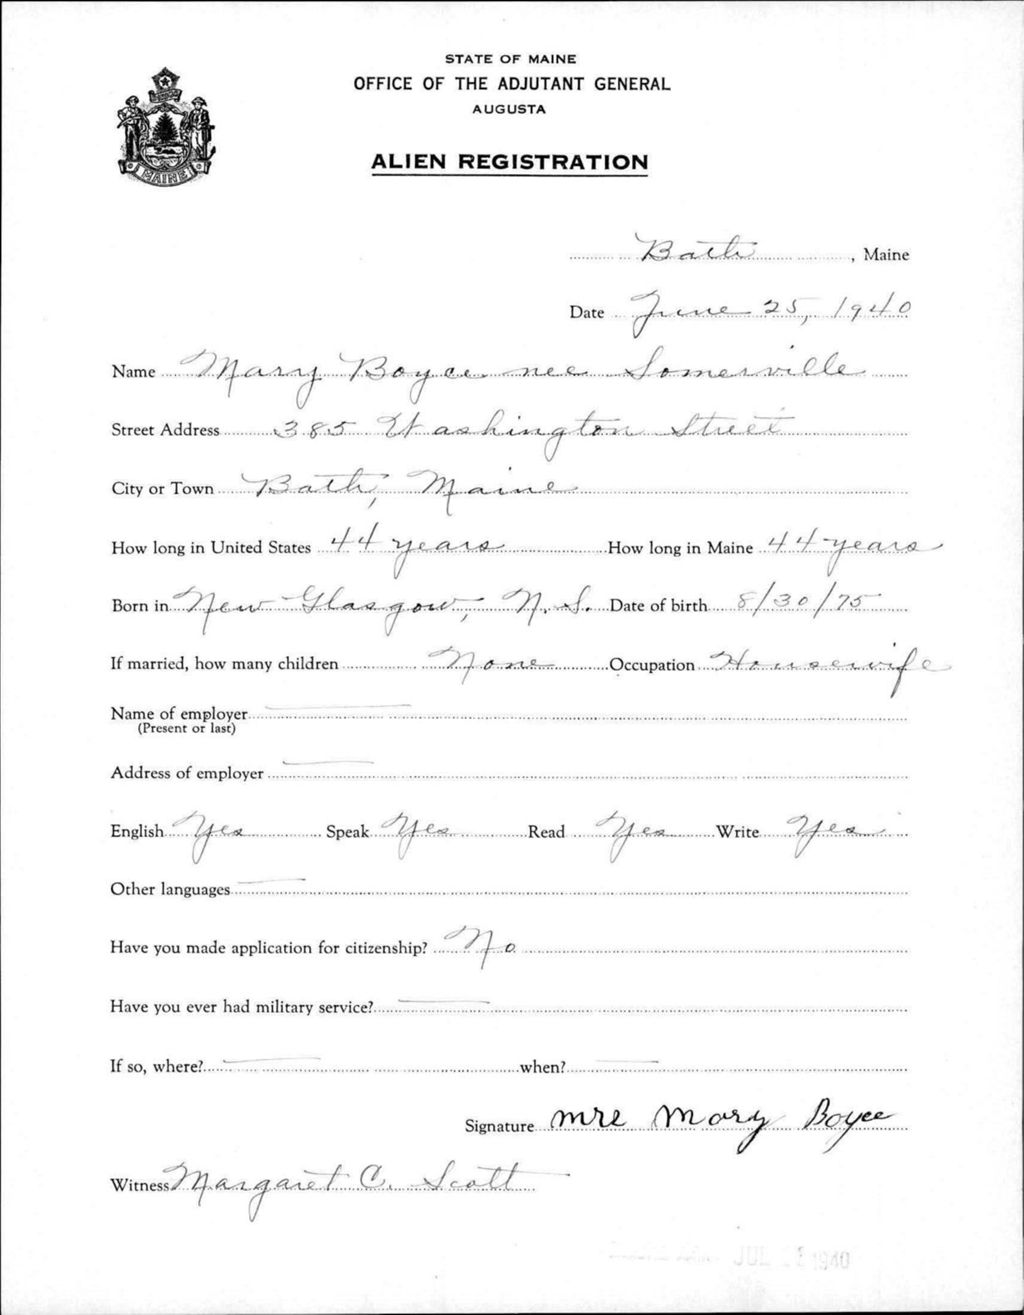 STATE OF MAINE
OFFICE OF THE ADJUTANT GENERAL
AUGUSTA
ALIEN REGISTRATION
MAINE
Bath, Maine
Date June 25, 1940
Name Mary Boyce nee Somerville
Street Address 385 Washington Street
City or Town Bath, Maine
How long in United States 44 years How long in Maine 44 years
Born in New Glasgow, N.S. Date of birth 8/30/75
If married, how many children None Occupation Housewife
Name of employer
(Present or last)
Address of employer
English Yes Speak Yes Read Yes Write Yes
Other languages
Have you made application for citizenship? No
Have you ever had military service?
If so, where? when?
Signature Mrs Mary Boyce
Witness Margaret C. Scott
JUL 1940